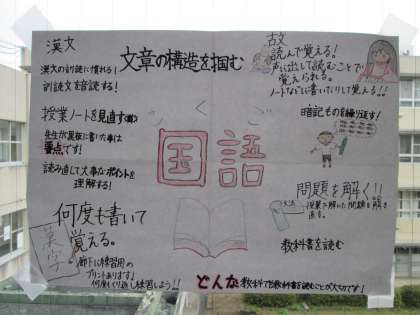 漢文
漢文の訓読に慣れる!
訓読文を暗読する!
文章の構造を掴む
読んで覚える!
声に出して読むことで
覚えられる。
ノートなどに書いたりして覚える!!
授業ノートを見直す
先生が黒板に書いた事は
重要点です!
読み直して大事なポイントを
理解する!
こくご
国語
暗記ものを繰り返す!
問題を解く!!
授業で解いた問題を解き
直す。
文法
教科書を読む
何度も書いて
覚える。
漢字
廊下に練習用の
プリントあります!
何度もくり返し練習しよう!!
どんな教科でも教科書を読むことが大切です!